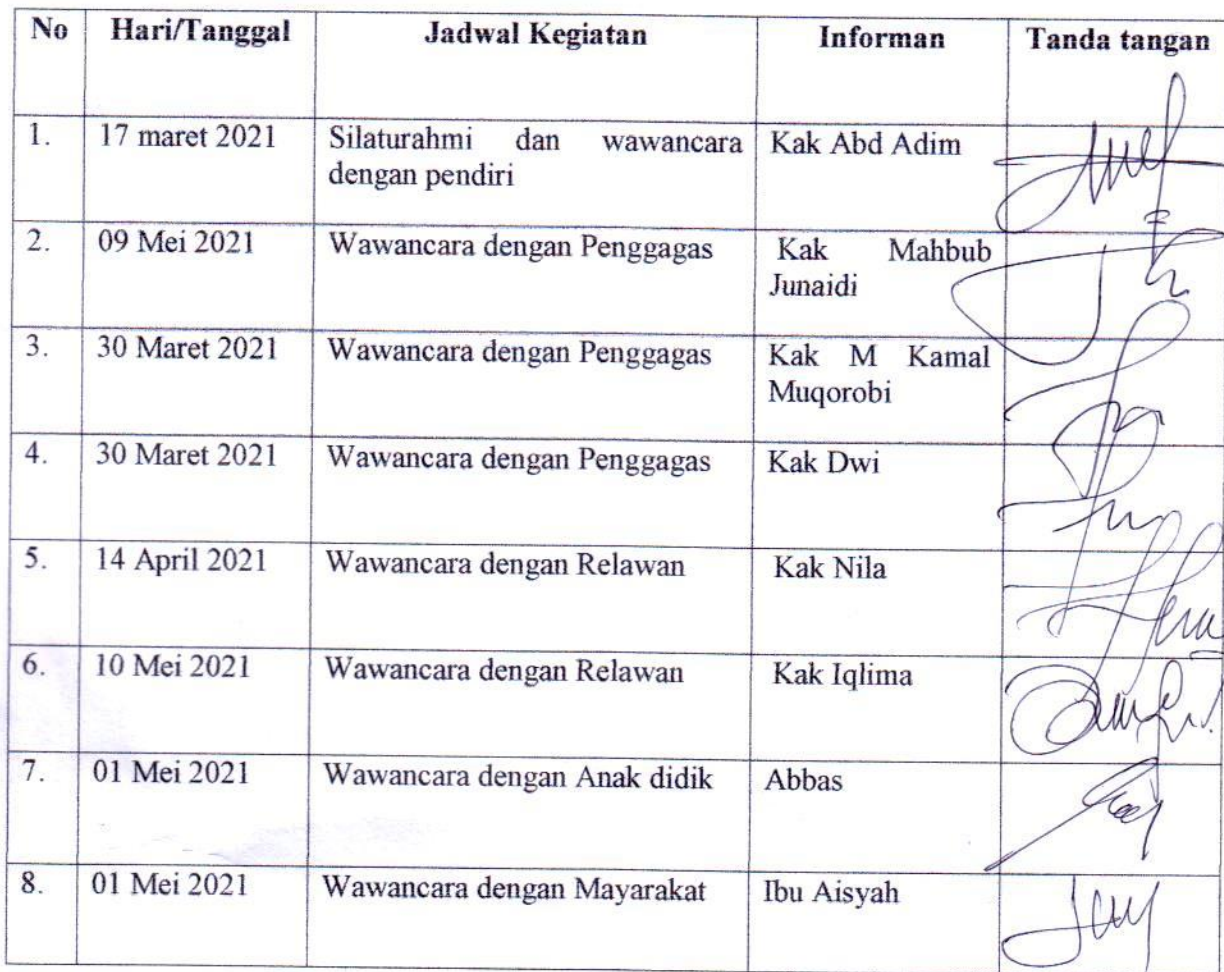 No Hari/Tanggal Jadwal Kegiatan Informan Tanda tangan
1. 17 maret 2021 Silaturahmi dan wawancara Kak Abd Adim
dengan pendiri
2. 09 Mei 2021 Wawancara dengan Penggagas Kak Mahbub
Junaidi
3. 30 Maret 2021 Wawancara dengan Penggagas Kak M Kamal
Muqorobi
4. 30 Maret 2021 Wawancara dengan Penggagas Kak Dwi
5. 14 April 2021 Wawancara dengan Relawan Kak Nila
6. 10 Mei 2021 Wawancara dengan Relawan Kak Iqlima
7. 01 Mei 2021 Wawancara dengan Anak didik Abbas
8. 01 Mei 2021 Wawancara dengan Mayarakat Ibu Aisyah